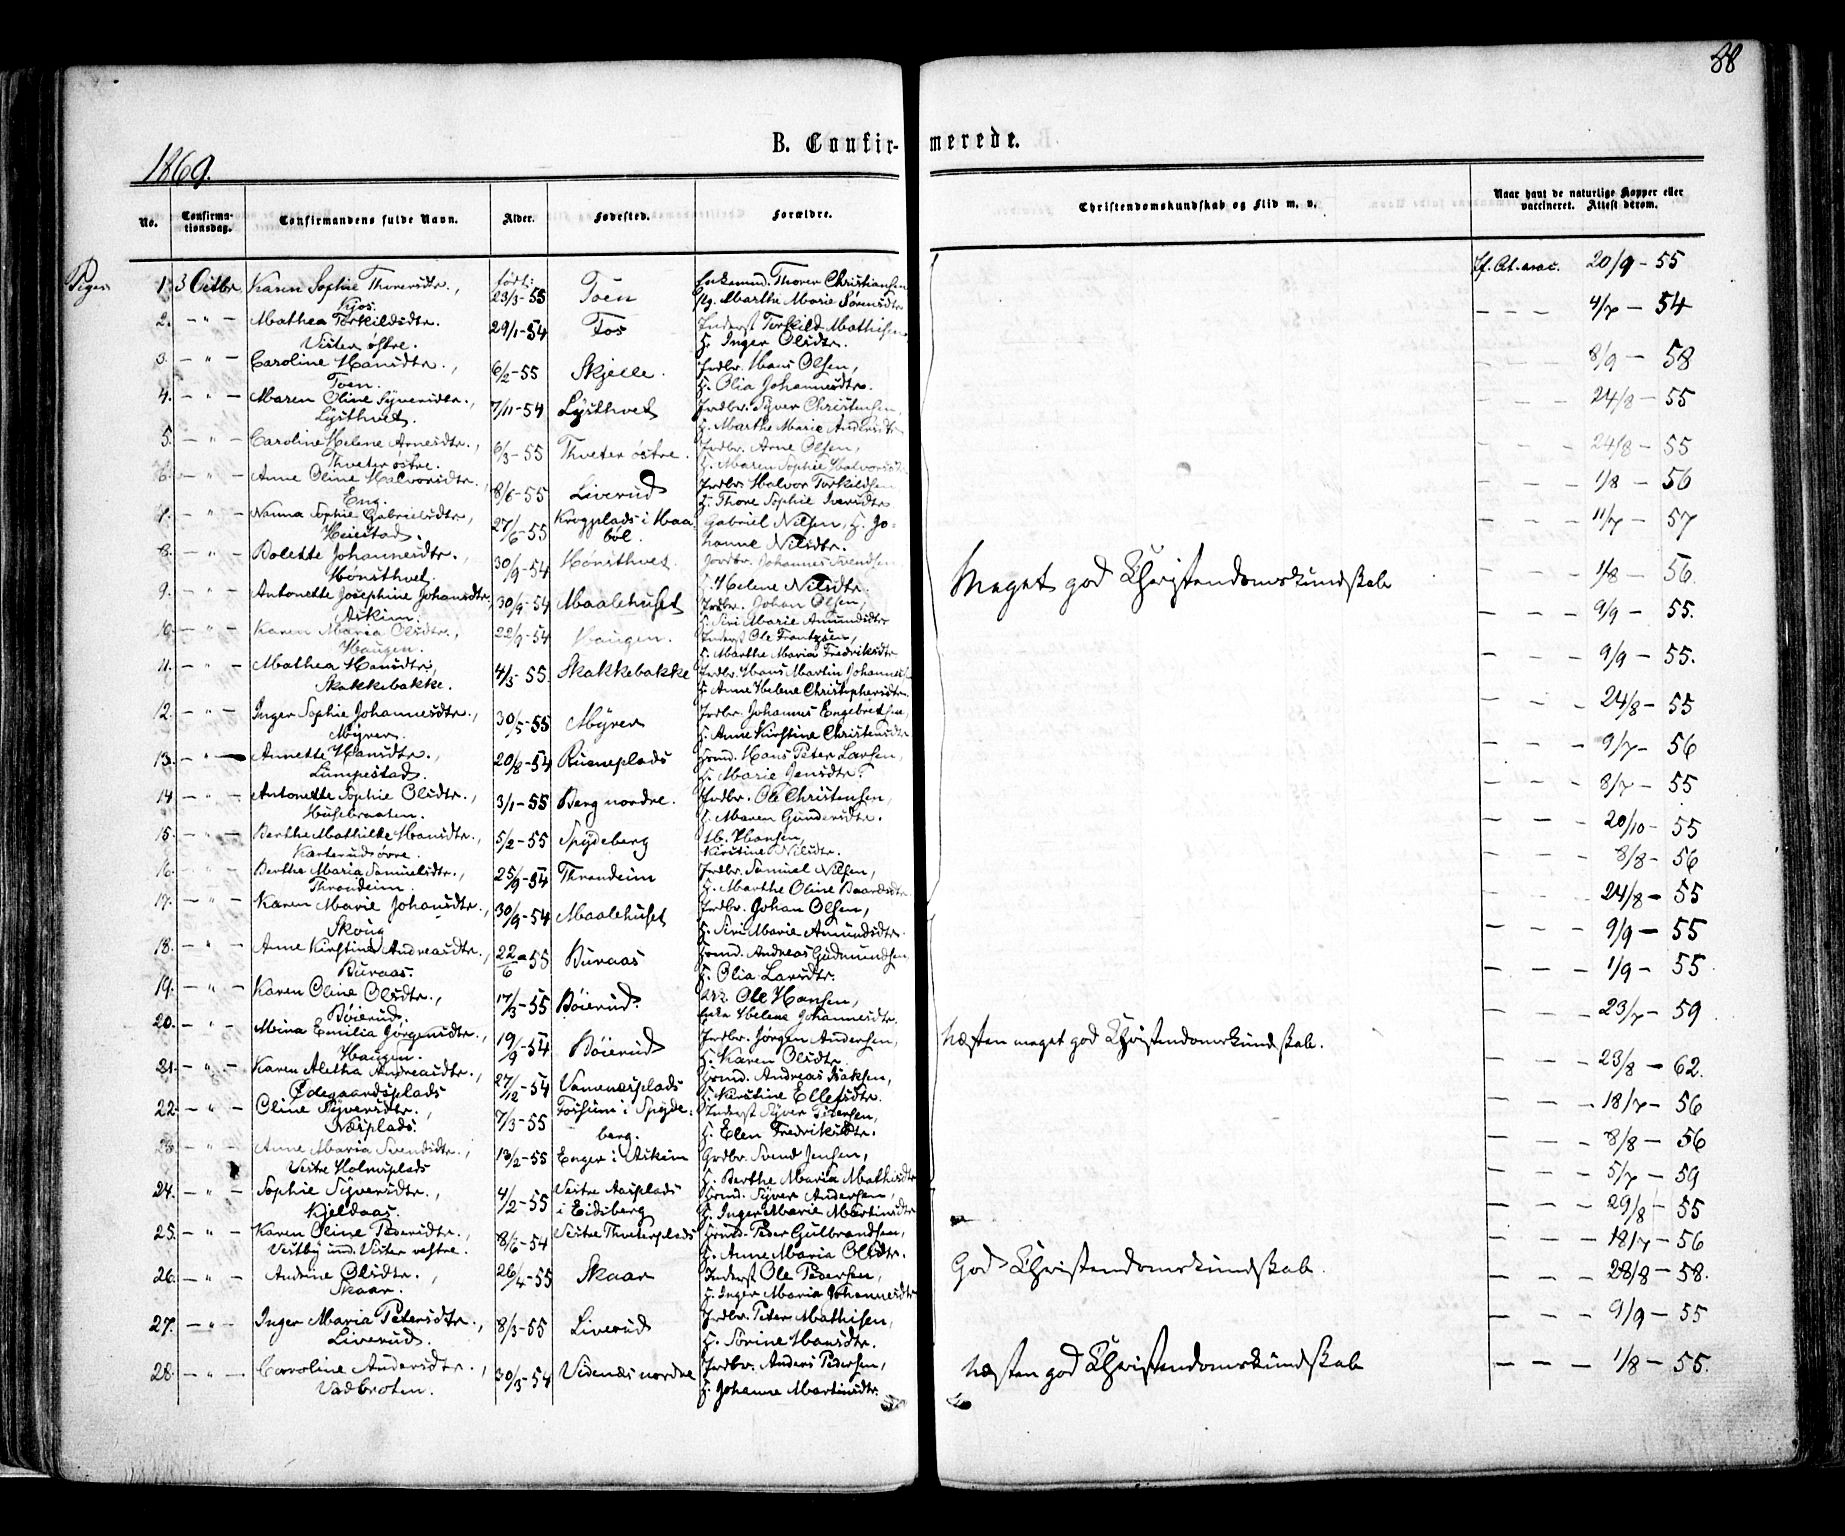 88
B. Confir- merede.
1869.
No. Confirmationsdag. Confirmandens fulde Navn. Alder. Fødested. Forældre. Christendomskundskab og Flid m. v. Naar havt de naturlige Kopper eller vaccineret. Attest derom.
Piger
1. 3 Octbr. Karen Sophie Thorersdtr., Kjos. født: 23/3-55 Toen Thorer Christiansen Pg. Marthe Marie Sørensdtr. 20/9-55
2. - " - Mathea Torkildsdtr. Vister østre. 29/1-54 Fos Inderst Torkild Mathisen H. Inger Olsdtr. - - - 4/7-54
3. - " - Caroline Hansdtr., Toen. 6/2-55 Skjelle. Grdbr. Hans Olsen, H. Olia Johannesdtr. - - - 8/9-58
4. - " - Maren Oline Syversdtr., Lysthvet. 7/11-54 Lysthvet Grdbr. Syver Christensen, H. Marthe Marie Andersdtr - - - 24/8-55
5. - " - Caroline Helene Arnesdtr., Thveter østre. 6/3-55 Thveter østre. Grdbr. Arne Olsen, H. Maren Sophie Halvorsdtr - - - 24/8-55
6. - " - Anne Oline Halvorsdtr., Eng. 8/6-55 Liverud Grdbr. Halvor Torkildsen H. Thore Sophie Iversdtr - - - 1/8-56
7. - " - Nanna Sophie Gabrielsdtr., Heiestad. 27/6-55 Krogplads i Haabøl. Gabriel Nilsen, H. Johanne Nilsdtr. - - - 11/7-57
8. - " - Bolette Johannesdtr., Hønsthvet. 30/9-54 Hønsthvet. Gaardbr. Johannes Svendsen H. Helene Nilsdtr. Meget god Christendomskundskab - - - 1/8-56.
9. - " - Antonette Josephine Johansdtr, Askim. 30/9-54 Maalehuset Grdbr. Johan Olsen, H. Siri Marie Amundsdtr - - - 9/9-55.
10. - " - Karen Maria Olsdtr., Haugen. 22/9-54 Haugen. Inderst Ole Frantzsen, H. Marthe Maria Fredriksdtr - - - 9/9-55.
11. - " - Mathea Hansdtr, Skakkebakke. 4/5-55. Skakkebakke Grdbr. Hans Martin Johannes H. Anne Helene Christophersdtr. - - - 24/8-55
12. - " - Inger Sophie Johannesdtr., Myrer. 30/5-55 Myrer Grdbr. Johannes Engebretsen, H. Anne Kirstine Christensdtr - - - 9/7-56
13. - " - Annette Hansdtr., Lumpestad. 20/8-54 Rusneplads Hmd. Hans Peter Larsen, H. Marie Jensdtr. - - - 8/7-55
14 - " - Antonette Sophie Olsdtr., Husebraaten. 3/1-55 Berg nordre. Grdbr. Ole Christensen, H. Maren Gundersdtr. - - - 20/10-55
15. - " - Berthe Mathilde Hansdtr., Karterud øvre. 5/2-55 Spydeberg Hansen, Kirstine Nilsdtr. - - - 8/8-56
16. - " - Berthe Maria Samuelsdtr., Throndeim. 25/9-54 Throndeim Grdbr. Samuel Nilsen, H. Marthe Oline Baardsdtr. - - - 24/8-55
17. - " - Karen Marie Johansdtr., Skoug 30/9-54 Maalehuset Grdbr. Johan Olsen, H. Siri Marie Amundsdtr. - - - 9/9-55
18. - " - Anne Kirstine Andreasdtr., Buraas. 22/6-55 Buraas Hmd. Andreas Gudmundsen, H. Olia Larsdtr. - - - 1/9-55
19. - " - Karen Oline Olsdtr., Bøierud. 17/3-55 Bøierud. Ole Hansen, Helene Johannesdtr. - - - 23/7-59
20. - " - Mina Emilia Jørgensdtr., Haugen. 19/9-54 Bøierud Grdbr. Jørgen Andersen, H. Karen Olsdtr. Næsten meget god Christendomskundskab. - - - 23/8-62.
21. - " - Karen Aletha Andreasdtr., Ødegaardsplads 27/12-54 Vamenæsplads Hmd. Andreas Isaksen, H. Kirstine Ellefsdtr. - - - 18/7-56
22. - " - Oline Syversdtr., Næsplads. 7/3-55 Fossum i Spydeberg. Inderst Syver Petersen, H. Elen Fredriksdtr. - - - 8/8-56
23. - " - Anne Maria Svendsdtr., Vestre Holmsplads 13/2-55 Enger i Askim Grdbr. Svend Jensen, H. Berthe Maria Mathisdtr - - - 5/7-59
24. - " - Sophie Syversdtr., Kjeldaas. 4/2-55 Vestre Aasplads i Eidsberg Hmd. Syver Andersen, H. Inger Marie Martinsdtr - - - 29/8-55
25. - " - Karen Oline Pedersdtr., Vestby und. Vister vestre. 8/6-54 Vestre Thveterplads Hmd. Peder Gulbrandsen, H. Anne Maria Olsdtr. - - - 18/7-56
26. - " - Andrine Olsdtr., Skaar. 26/4-55 Skaar Inderst Ole Pedersen, H. Inger Maria Johannesdtr God Christendomskundskab. - - - 28/8-58.
27. - " - Inger Maria Petersdtr., Liverud. 8/3-55 Liverud Grdbr. Peter Mathisen, H. Sørine Hansdtr. - - - 9/9-55
28. - " - Caroline Andersdtr., Vadbroten. 30/3-54 Videnæs nordre Grdbr. Anders Pedersen, H. Johanne Martinsdtr. Næsten god Christendomskundskab - - - 1/8-55.